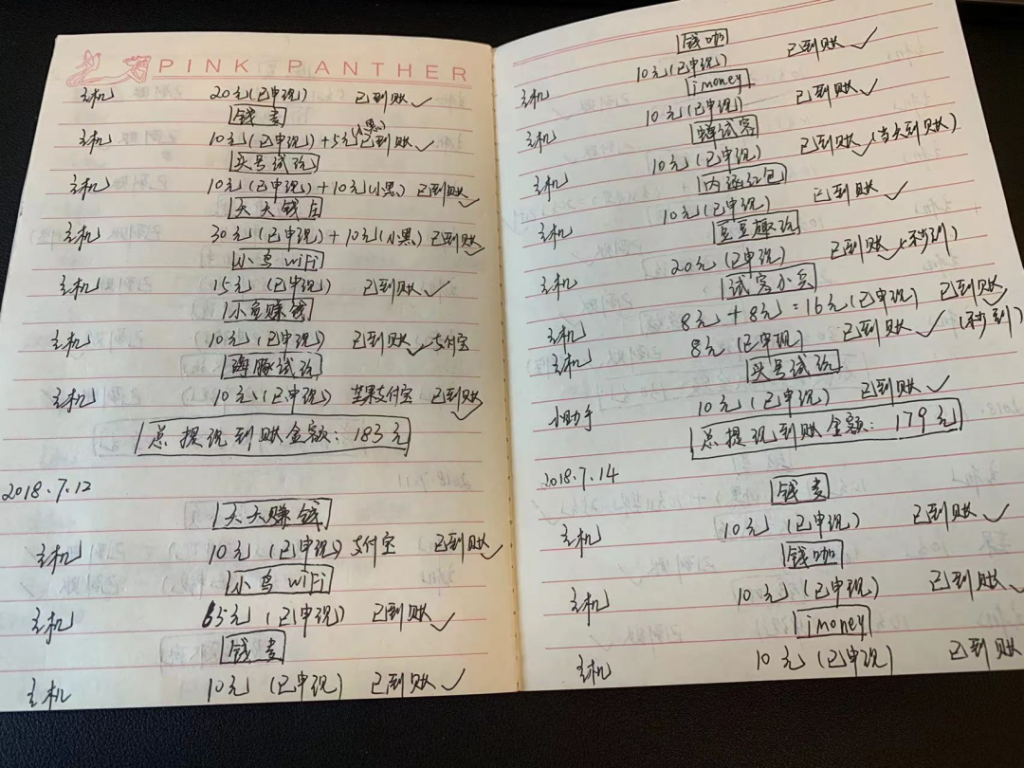 PINK PANTHER
主机 20元(已申现) 已到账✓
钱麦
主机 10元(已申现)+5元(小黑)已到账✓
头号试玩
主机 10元(已申现)+10元(小黑) 已到账✓
天天钱
主机 30元(已申现)+10元(小黑) 已到账✓
小鸟WiFi
主机 15元(已申现) 已到账✓
小鱼赚钱
主机 10元(已申现) 已到账✓支付宝
海豚试玩
主机 10元(已申现) 苹果支付宝 已到账✓
总提现到账金额:183元
2018.7.12
天天赚钱
主机 10元(已申现) 支付宝 已到账✓
小鸟WiFi
主机 65元(已申现) 已到账✓
钱麦
主机 10元(已申现) 已到账✓
钱咖
主机 10元(已申现) 已到账✓
imoney
主机 10元(已申现) 已到账✓
蝉试客
主机 10元(已申现) 已到账✓(当天到账)
内涵红包
主机 10元(已申现) 已到账✓
豆豆趣玩
主机 20元(已申现) 已到账✓(秒到)
试客小兵
主机 8元+8元=16元(已申现) 已到账✓
主机 8元(已申现) 已到账✓(秒到)
头号试玩
小助手 10元(已申现) 已到账✓
总提现到账金额:179元
2018.7.14
钱麦
主机 10元(已申现) 已到账✓
钱咖
主机 10元(已申现) 已到账✓
imoney
主机 10元(已申现) 已到账✓